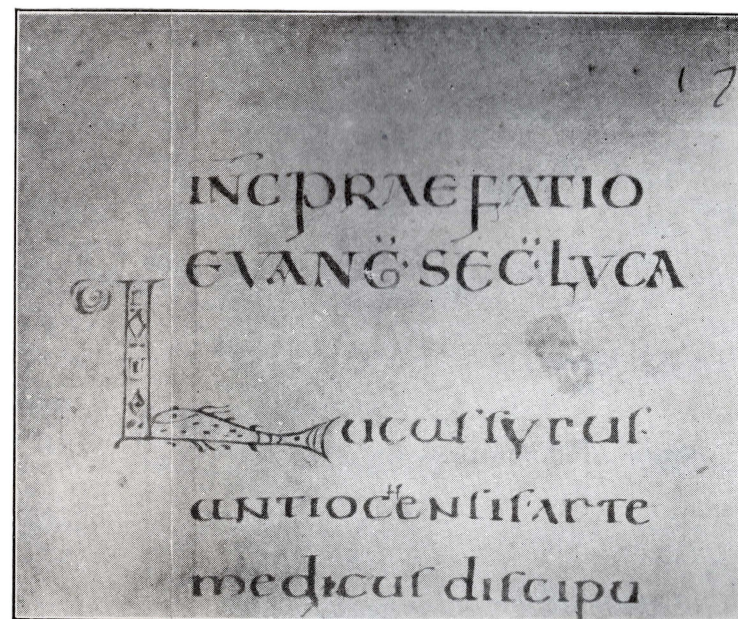 17
INC̄ PRAEFATIO
EVANG̈·SEC̈·LVCA
Lucas syrus
antiocensis·arte
medicus discipu